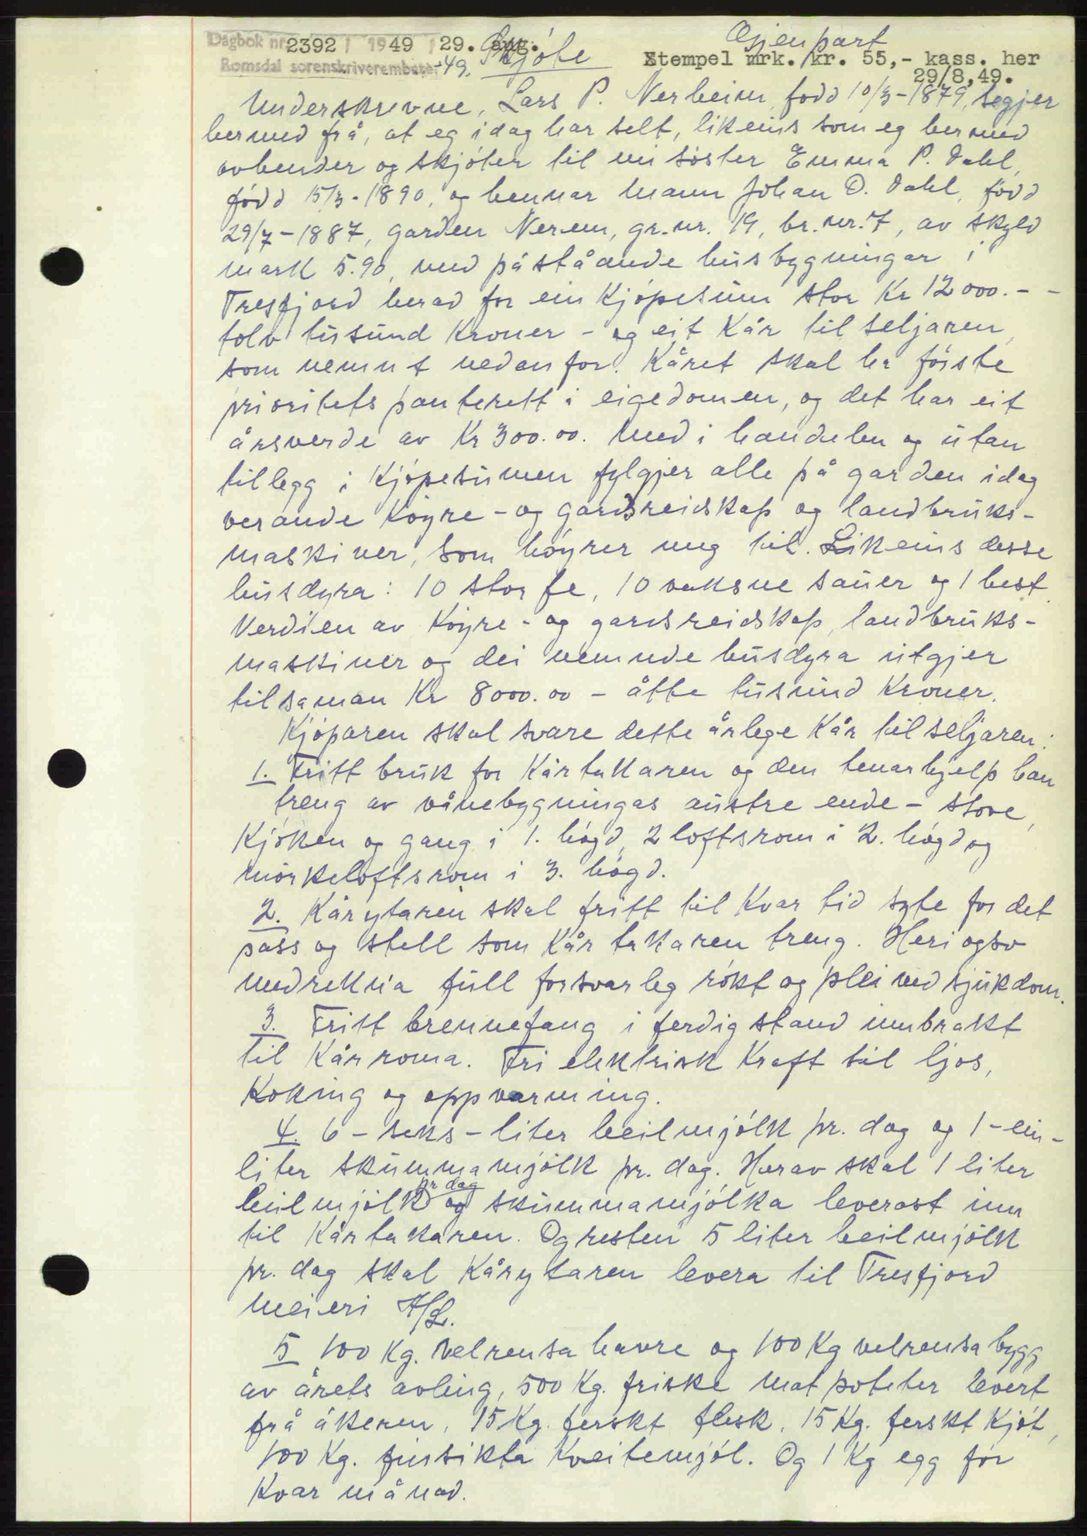 Dagbok nr. 2392 1949 29. aug. Gjenpart
Romsdal sorenskriverembete -49. Skjøte Stempel mrk. kr. 55,- kass. her
29/8.49.
Underskrevne, Lars P. Nerheim, fødd 10/3-1879, segjer
hermed frå, at eg idag har selt, likeins som eg hermed
avhender og skjøter til mi søster Emma P. Dahl,
fødd 15/3-1890, og hennar mann Johan O. Dahl, fødd
29/7-1887, garden Nerem, gr.nr. 19, br.nr. 7, av skyld
mark 5.90, med påståande husbygningar i
Tresfjord herad for ein kjøpesum stor Kr 12000.- -
tolv tusund kroner - og eit kår til seljaren,
som nemnt nedanfor. Kåret skal ha første
prioritets panterett i eigedomen, og det har eit
årsverde av Kr 300.00. Med i handelen og utan
tillegg i kjøpesumen fylgjer alle på garden idag
verande køyre- og gardsreidskap og landbruks-
maskiner, som høyrer meg til. Likeins desse
husdyra: 10 storfe, 10 vaksne sauer og 1 hest.
Verdien av køyre- og gardsreidskap, landbruks-
maskiner og dei nemnde husdyra utgjer
tilsaman Kr 8000.00 - åtte tusund kroner.
Kjøparen skal svare dette årlege kår til seljaren:
1. Fritt bruk for kårtakaren og den tenarhjelp han
treng av vånebygningas austre ende - stove,
kjøken og gang i 1. høgd, 2 loftsrom i 2. høgd og
mørkeloftsrom i 3. høgd.
2. Kårytaren skal fritt til kvar tid syte for det
pass og stell som kårtakaren treng. Heri ogso
medrekna full forsvarleg røkt og plei ved sjukdom.
3. Fritt brennefang i ferdig stand innbrakt
til kårroma. Fri elektrisk kraft til ljos,
koking og oppvarming.
4. 6 - seks - liter heilmjølk pr. dag og 1 - ein -
liter skummamjølk pr. dag. Herav skal 1 liter
pr dag
heilmjølk og skummamjølka leverast inn
til kårtakaren. Og resten 5 liter heilmjølk
pr. dag skal kårytaren levera til Tresfjord
meieri A/L.
5 100 Kg. velrensa havre og 100 Kg velrensa bygg
av årets avling, 500 Kg. friske matpoteter levert
frå åkeren, 15 Kg. ferskt flesk, 15 Kg. ferskt kjøt,
100 Kg. finsikta kveitemjøl. Og 1 Kg egg for
kvar månad.